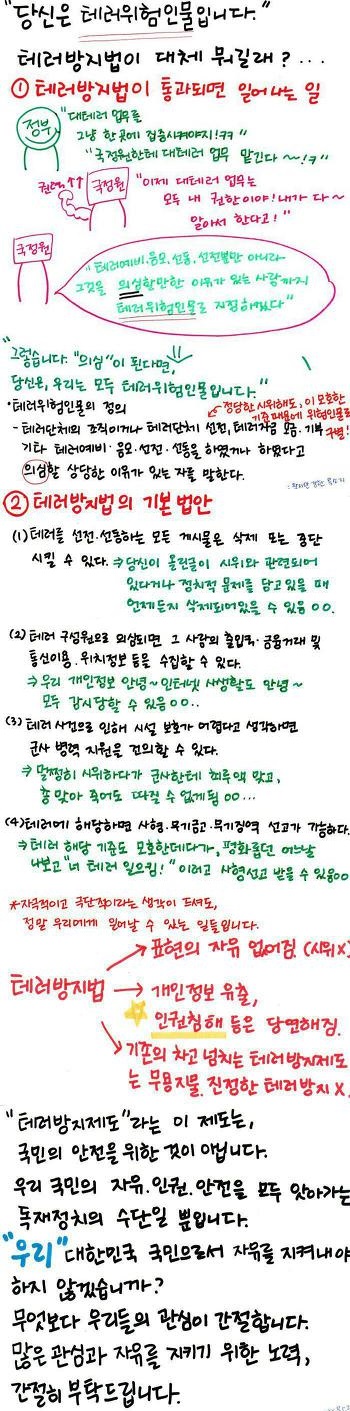 "당신은 테러위험인물입니다."
테러방지법이 대체 뭐길래?...
① 테러방지법이 통과되면 일어나는 일
정부
"대테러 업무를
그냥 한곳에 집중시켜야지!ㅋㅋ"
"국정원한테 대테러 업무 맡긴다~!ㅋ"
권력↑↑
국정원
"이제 대테러 업무는
모두 내 권한이야! 내가 다~
알아서 한다고!"
국정원
"테러예비·음모·선동·선전뿐만 아니라
그것을 의심할만한 이유가 있는 사람까지
테러위험인물로 지정하겠다"
"그렇습니다. "의심"이 된다면,
당신은, 우리는 모두 테러위험인물입니다."
•테러위험인물의 정의
→정당한 시위해도, 이 모호한
기준 때문에 위험인물로
구별!
- 테러단체의 조직이거나 테러단체 선전, 테러자금 모금·기부
기타 테러예비·음모·선전·선동을 하였거나 하였다고
의심할 상당한 이유가 있는 자를 말한다.
② 테러방지법의 기본법안
(1) 테러를 선전·선동하는 모든 게시물은 삭제 또는 중단
시킬 수 있다. ⇒당신이 올린글이 시위와 관련되어
있다거나 정치적 문제를 담고 있을 때
언제든지 삭제되어있을 수 있음 ㅇㅇ.
(2) 테러 구성원으로 의심되면 그 사람의 출입국·금융거래 및
통신이용·위치정보 등을 수집할 수 있다.
⇒우리 개인정보 안녕~인터넷 사생활도 안녕~
모두 감시당할 수 있음 ㅇㅇ..
(3) 테러 사건으로 인해 시설 보호가 어렵다고 생각하면
군사 병력 지원을 건의할 수 있다.
⇒ 멀쩡히 시위하다가 군사한테 최루액 맞고,
총 맞아 죽어도 따질 수 없게됨 ㅇㅇ...
(4) 테러에 해당하면 사형·무기금고·무기징역 선고가 가능하다.
⇒테러 해당 기준도 모호한데다가, 평화롭던 어느날
나보고 "너 테러 일으킴!" 이러고 사형선고 받을 수 있음ㅇㅇ
*자극적이고 극단적이라는 생각이 드셔도,
정말 우리에게 일어날 수 있는 일들입니다.
테러방지법
→표현의 자유 없어짐 (시위X)
→ 개인정보 유출,
인권침해 등은 당연해짐.
→기존의 차고 넘치는 테러방지제도
는 무용지물. 진정한 테러방지 X.
"테러방지제도"라는 이 제도는,
국민의 안전을 위한 것이 아닙니다.
우리 국민의 자유·인권·안전을 모두 앗아가는
독재정치의 수단일 뿐입니다.
"우리" 대한민국 국민으로서 자유를 지켜내야
하지 않겠습니까?
무엇보다 우리들의 관심이 간절합니다.
많은 관심과 자유를 지키기 위한 노력,
간절히 부탁드립니다.